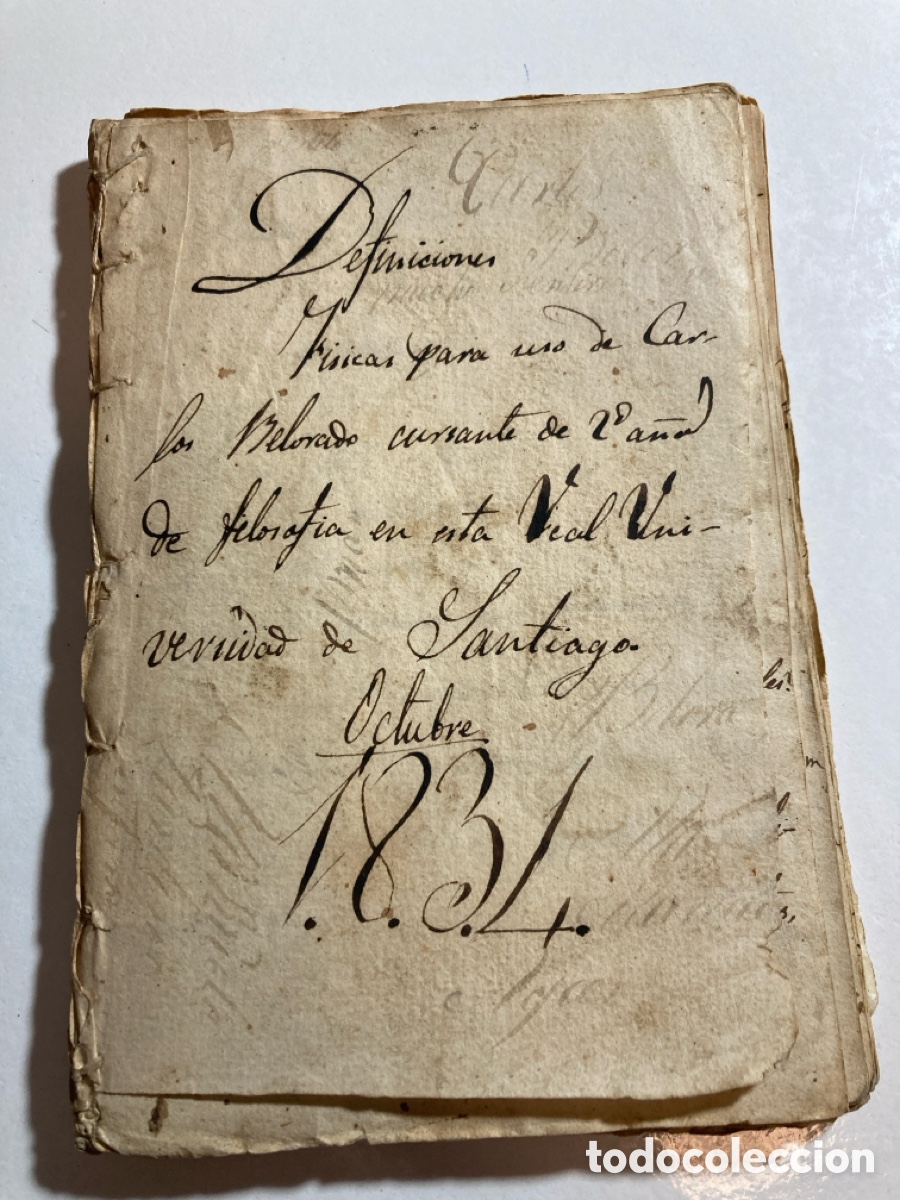 Definiciones
Fisicas para uso de Car-
los Belorado cursante de 2º año
de filosofia en esta Real Uni-
versidad de Santiago.
Octubre
1.8.3.4.
les.
m
todocoleccion